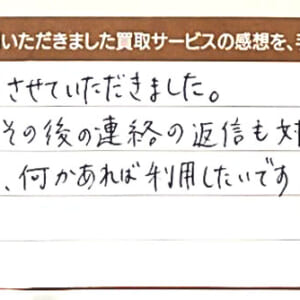 いただきました買取サービスの感想を、
させていただきました。
その後の連絡の返信も
、何かあれば利用したいです